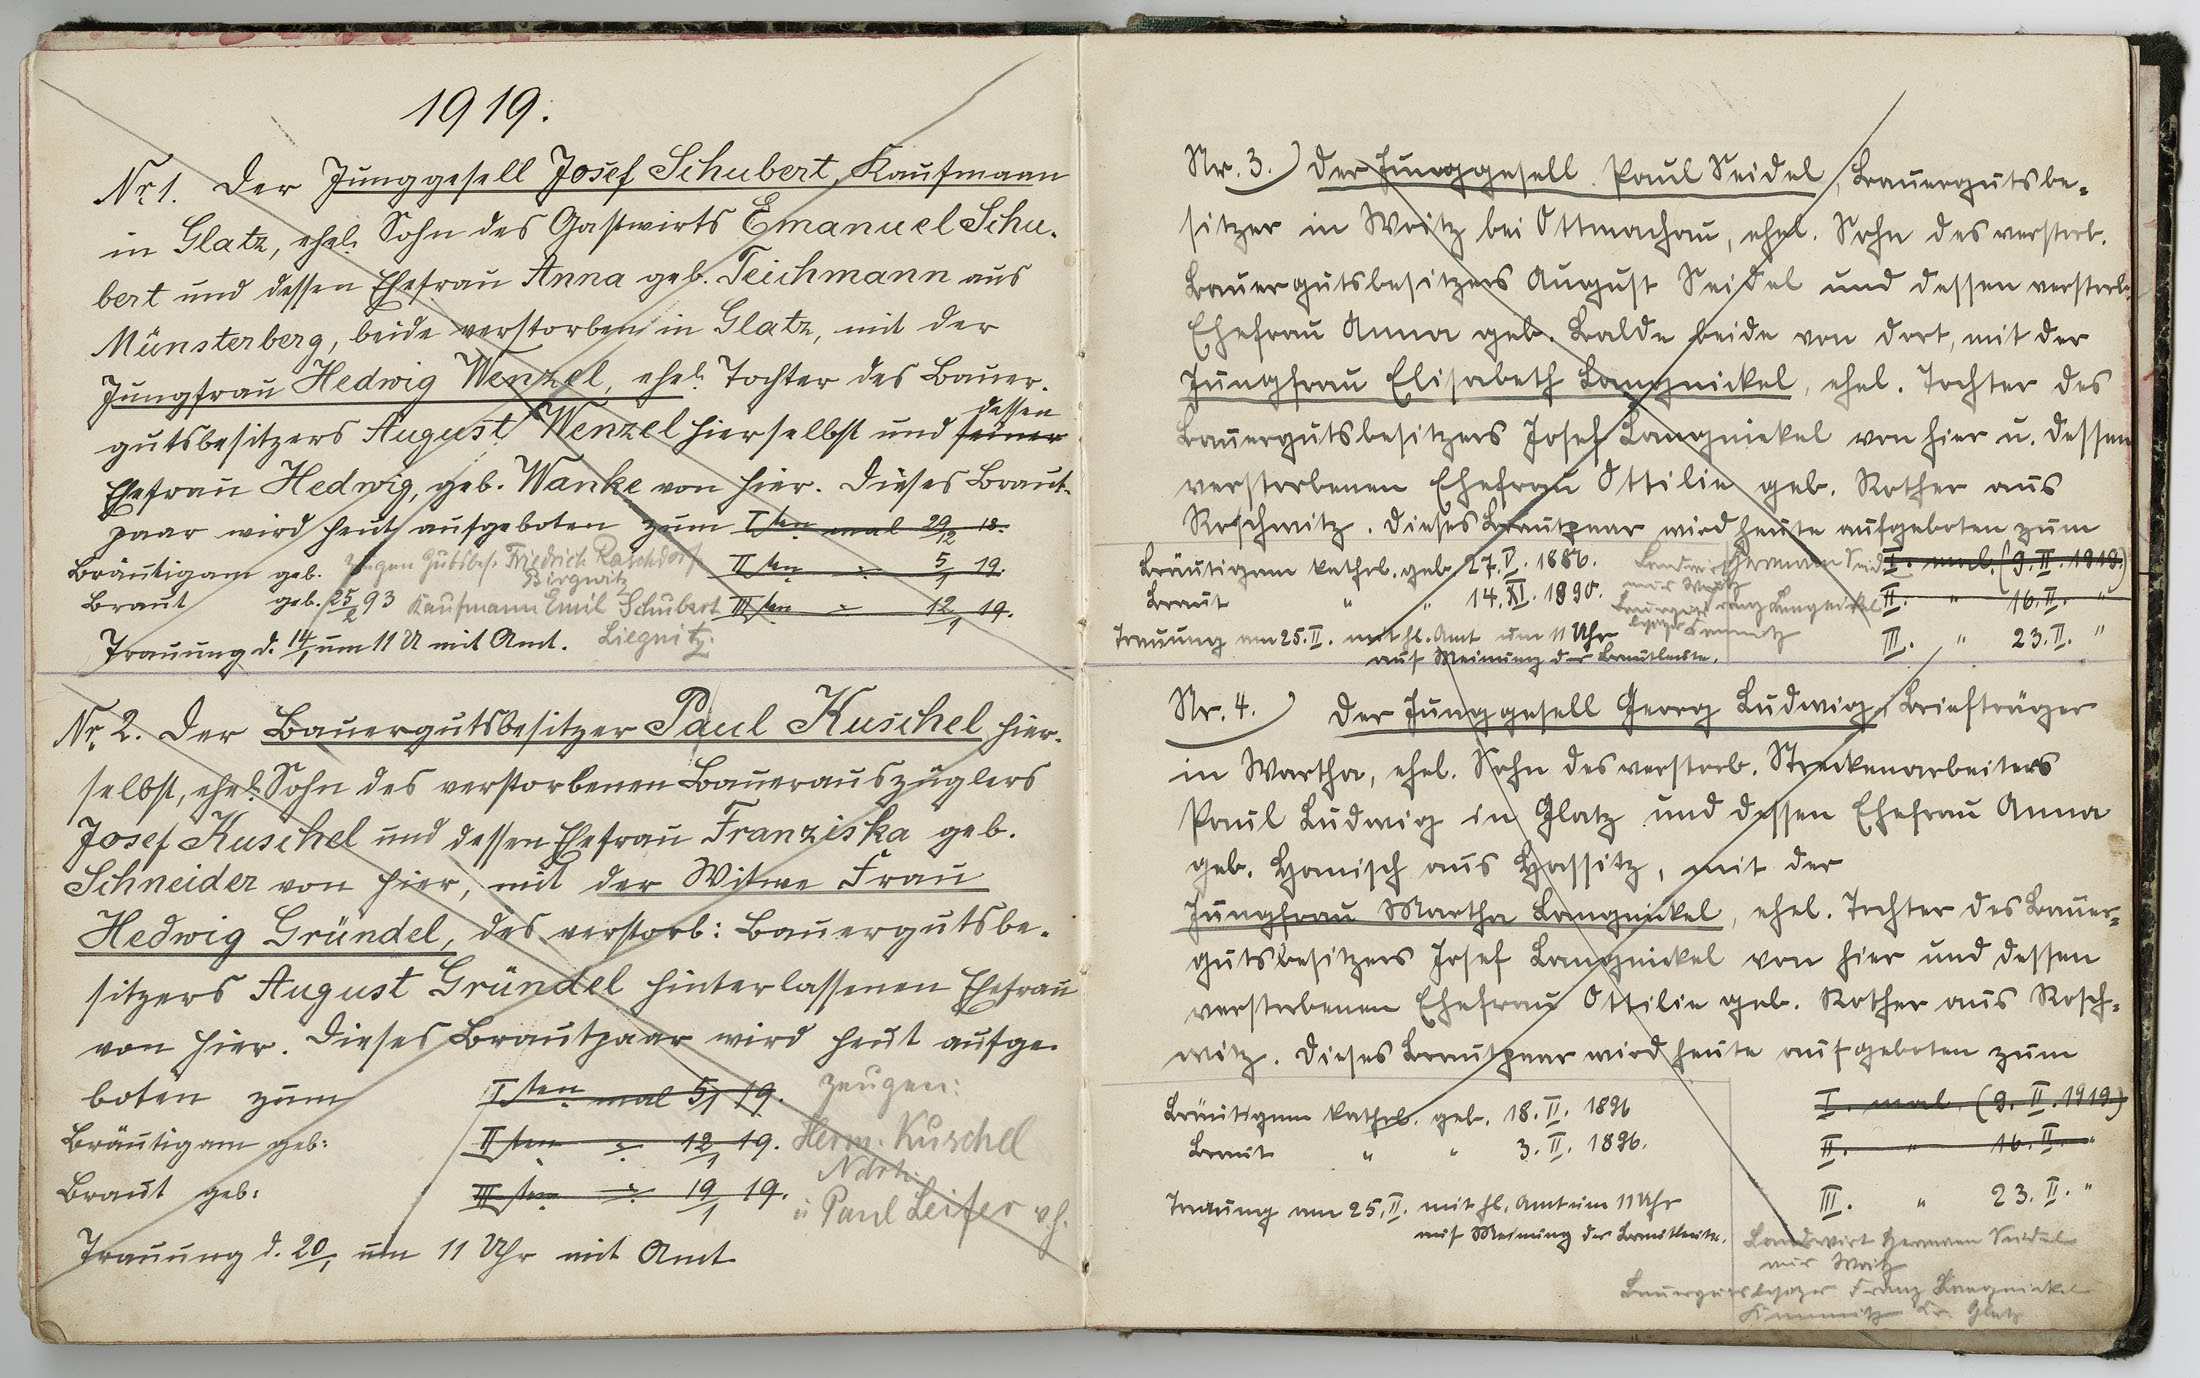 1919.
Nr 1. Der Junggesell Josef Schubert, Kaufmann
in Glatz, ehel. Sohn des Gastwirts Emanuel Schu-
bert und dessen Ehefrau Anna geb. Teichmann aus
Münsterberg, beide verstorben in Glatz, mit der
Jungfrau Hedwig Wenzel, ehel. Tochter des Bauer-
dessen
gutsbesitzers August Wenzel hierselbst und seiner
Ehefrau Hedwig, geb. Wanke von hier. Dieses Braut-
paar wird heut aufgeboten zum I ten mal 29/12 18.
Bräutigam geb. Zeugen Gutsbes. Friedrich Raschdorf II ten " 5/1 19.
Birgwitz
Braut geb. 25/2 93 Kaufmann Emil Schubert III ten " 12/1 19.
Trauung d. 14/1 um 11 U mit Amt. Liegnitz.
Nr. 2. Der Bauergutsbesitzer Paul Kuschel hier-
selbst, ehel. Sohn des verstorbenen Bauerauszüglers
Josef Kuschel und dessen Ehefrau Franziska geb.
Schneider von hier, mit der Witwe Frau
Hedwig Gründel, des verstorb: Bauergutsbe-
sitzers August Gründel hinterlassenen Ehefrau
von hier. Dieses Brautpaar wird heut aufge-
boten zum I ten mal 5/1 19. Zeugen:
Bräutigam geb: II ten " 12/1 19. Herm. Kuschel
Braut geb: III ten " 19/1 19.
u Paul Leifer v.h.
Trauung d. 20/1 um 11 Uhr mit Amt
Nr. 3.) Der Junggesell Paul Seidel, Bauergutsbe-
sitzer in Woitz bei Ottmachau, ehel. Sohn des verstorb.
Bauergutsbesitzers August Seidel und dessen verstorb.
Ehefrau Anna geb. Balde beide von dort, mit der
Jungfrau Elisabeth Langnickel, ehel. Tochter des
Bauergutsbesitzers Josef Langnickel von hier u. dessen
verstorbenen Ehefrau Ottilie geb. Rother aus
Roschwitz. Dieses Brautpaar wird heute aufgeboten zum
Bräutigam kathol. geb. 27. V. 1886. Landwirt Hermann Seidel I. mal. (9. II. 1919.)
aus Woitz
Braut " " 14. XI. 1890. II. " 16. II. "
Trauung am 25. II. mit hl. Amt um 11 Uhr III. " 23. II. "
auf Meinung der Brautleute.
Nr. 4.) Der Junggesell Georg Ludwig, Briefträger
in Wartha, ehel. Sohn des verstorb. Streckenarbeiters
Paul Ludwig in Glatz und dessen Ehefrau Anna
geb. Hanisch aus Hassitz, mit der
Jungfrau Martha Langnickel, ehel. Tochter des Bauer-
gutsbesitzers Josef Langnickel von hier und dessen
verstorbenen Ehefrau Ottilie geb. Rother aus Rosch-
witz. Dieses Brautpaar wird heute aufgeboten zum
Bräutigam kathol. geb. 18. II. 1896 I. mal. (9. II. 1919.)
Braut " " 3. II. 1896. II. " 16. II. "
Trauung am 25. II. mit hl. Amt um 11 Uhr III. " 23. II. "
auf Meinung der Brautleute.
Landwirt Hermann Seidel
aus Woitz
Bauergutsbesitzer Franz Langnickel
Kr. Glatz